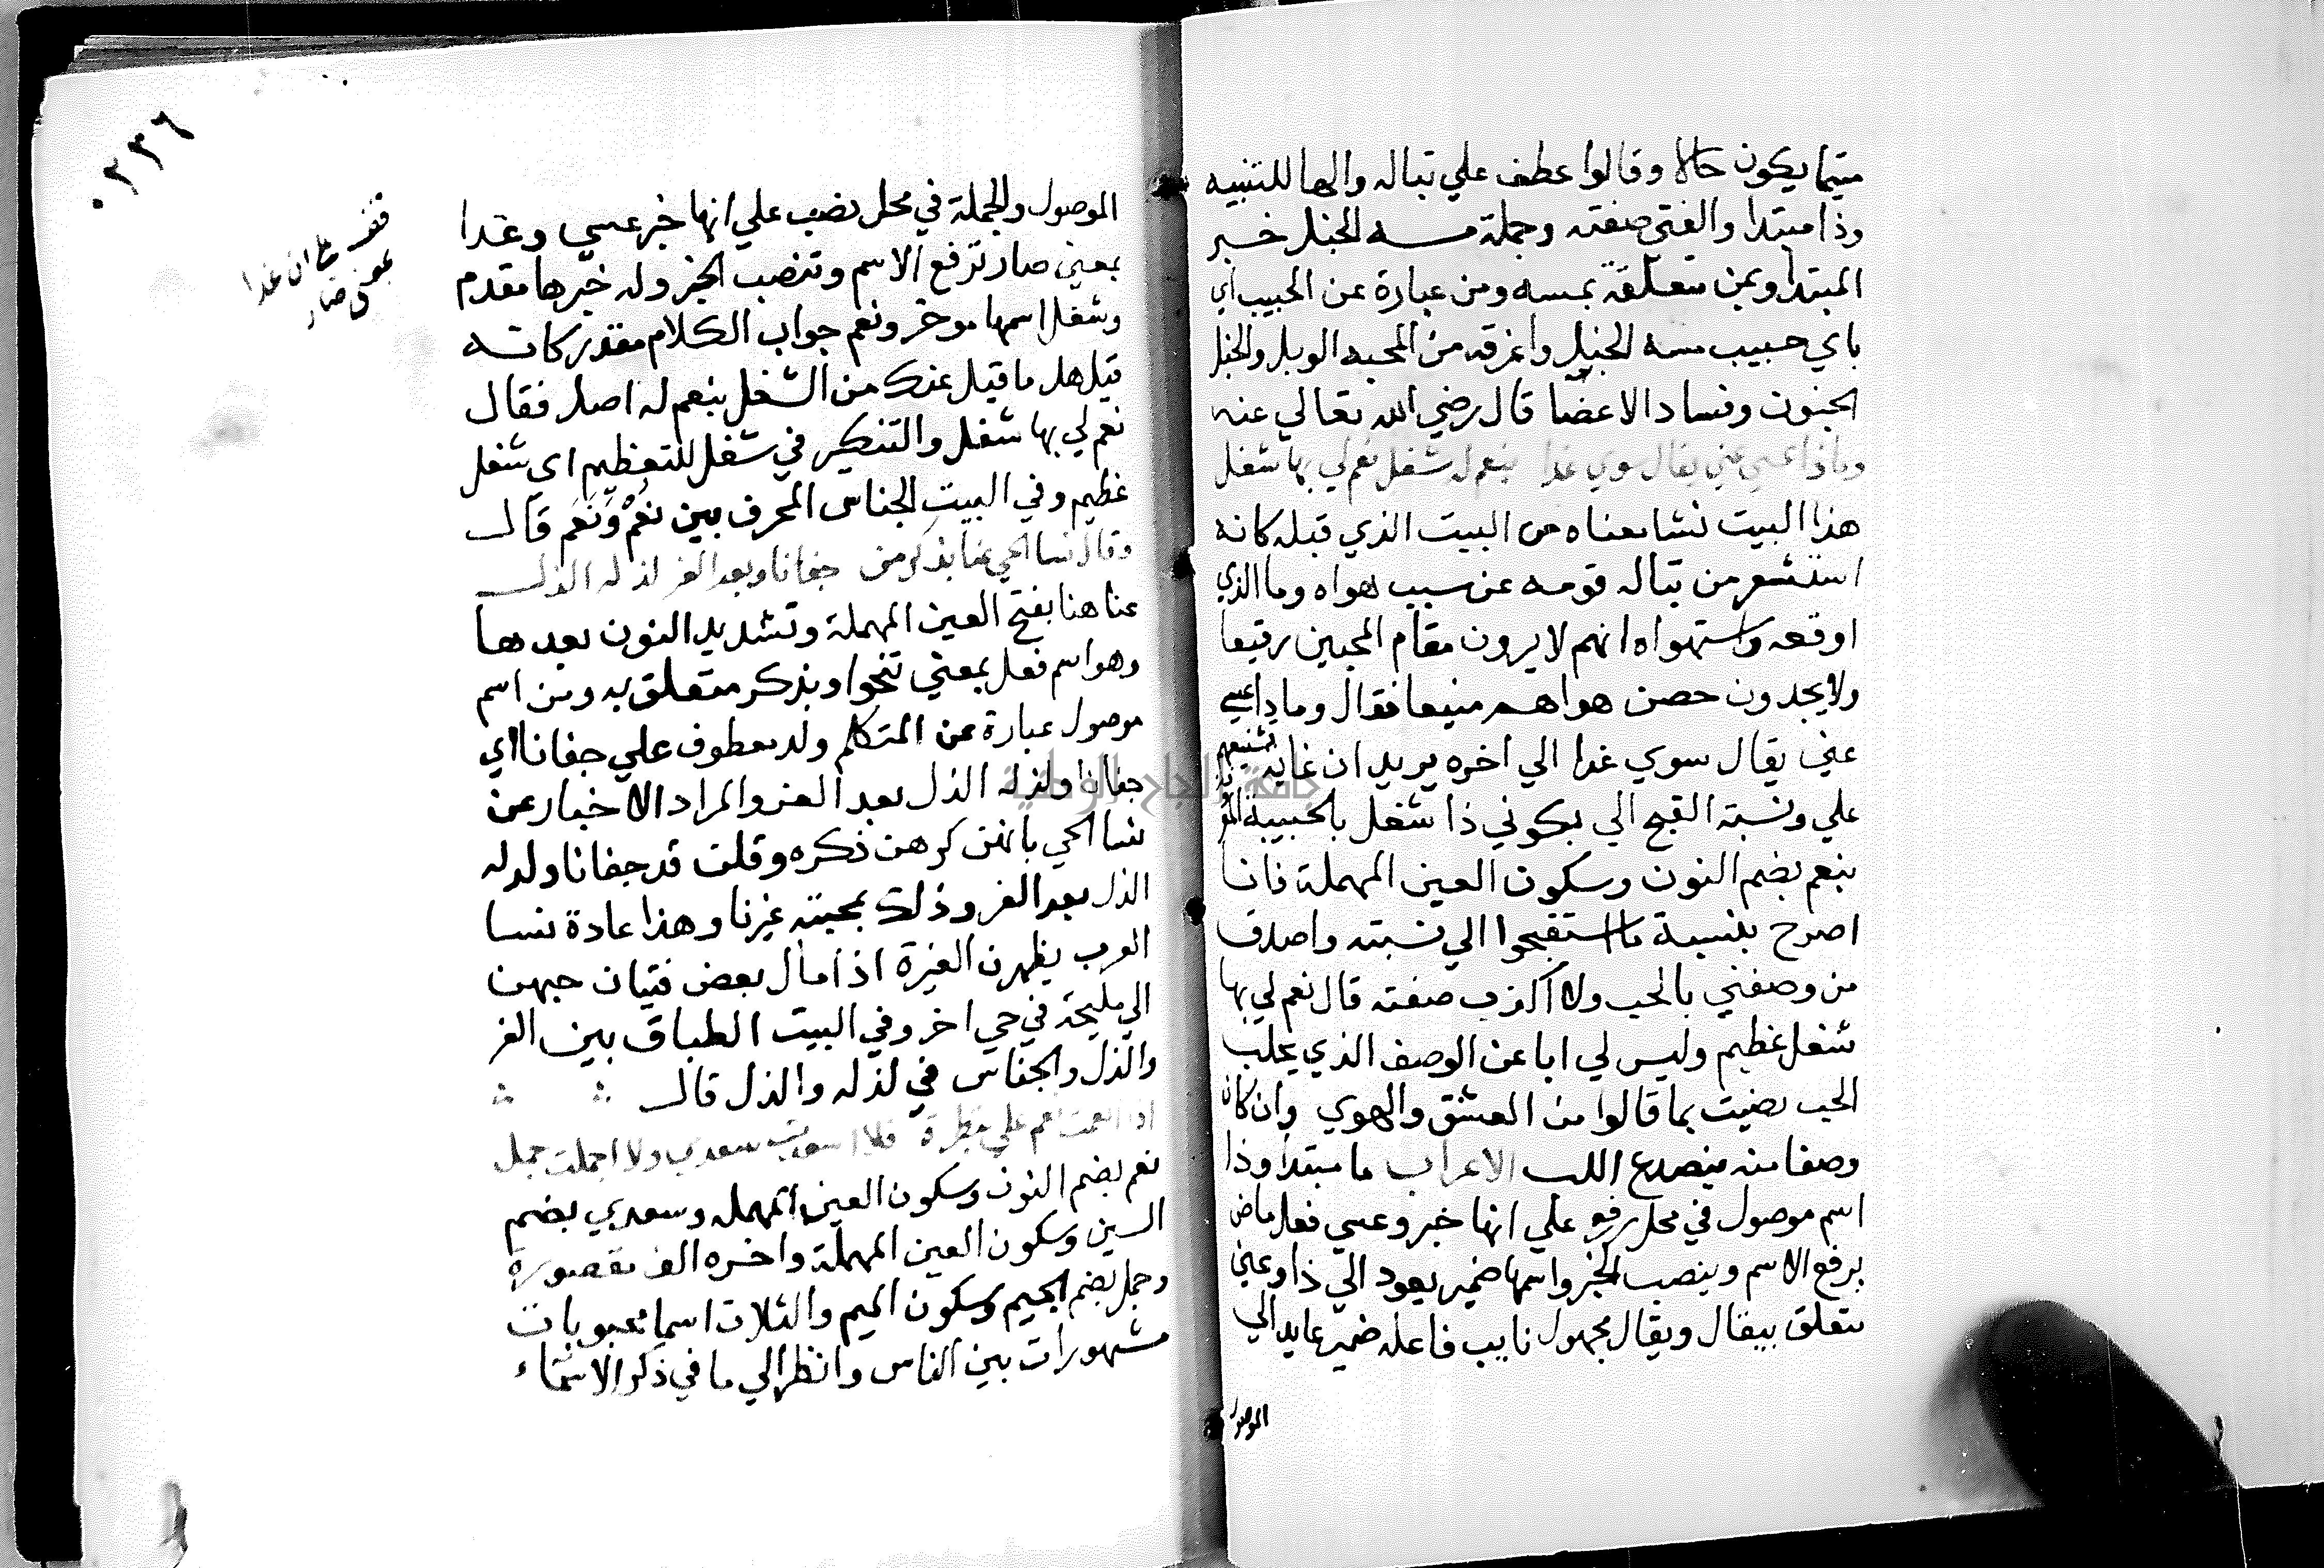 متيما يكون حالا وقالوا عطف علي تباله والها للتنبيه
وذا مبتدا والفتي صفته وجملة مسه الخبل خبر
المبتدا وبمن متعلقة بمسه ومن عبارة عن الحبيب اي
باي حبيب مسه الخبل واغرقه من المحبه الوبل والخبل
الجنون وفساد الاعضا قال رضي الله تعالي عنه
وماذا عسي عني يقال سوي غدا بنعم له شغل نعم لي بها شغل
هذا البيت نشا معناه من البيت الذي قبله كانه
استشعر من تباله قومه عن سبب هواه وما الذي
اوقعه واستهواه انهم لا يرون مقام المحبين رفيعا
ولا يجدون حصن هواهم منيعا فقال وماذا عسي
عني يقال سوي غدا الي اخره يريد ان غاية تشنيعهم
علي ونسبة القبح الي بكوني ذا شغل بالحبيبة
بنعم بضم النون وسكون العين المهملة فانا
اصرح بنسبة ما استقبحوا الي نسبته واصدق
من وصفني بالحب ولا اكذب صفته قال نعم لي بها
شغل عظيم وليس لي ابا عن الوصف الذي يجلب
الحب رضيت بما قالوا من العشق والهوي وان كان
وصفا منه ينصدع اللب الاعراب ما مبتدا وذا
اسم موصول في محل رفع علي انها خبر وعسي فعل ماض
يرفع الاسم وينصب الخبر واسمها ضمير يعود الي ذا وعني
متعلق بيقال ويقال مجهول نايب فاعله ضمير عايد الي
الموصول
٢٣٦
الموصول والجملة في محل نصب علي انها خبر عسي وغدا
بمعني صار ترفع الاسم وتنصب الخبر وله خبرها مقدم
وشغل اسمها موخر ونعم جواب الكلام مقدر كانه
قيل هل ما قيل عنك من الشغل بنعم له اصل فقال
نعم لي بها شغل والتنكير في شغل للتعظيم اي شغل
عظيم وفي البيت الجناس المحرف بين نُعْم ونَعَم قال
وقال نسا الحي عنا بذكر من جفانا وبعد العز لذ له الذل
عنا هنا بفتح العين المهملة وتشديد النون بعدها
وهو اسم فعل بمعني تنحوا وبذكر متعلق به ومن اسم
موصول عبارة عن المتكلم ولذ معطوف علي جفانا اي
جفانا ولذ له الذل بعد العز والمراد الاخبار عن
نسا الحي بانهن كرهن ذكره وقلن قد جفانا ولذ له
الذل بعد العز وذلك بمحبته غيرنا وهذا عادة نسا
العرب يظهرن الغيرة اذا مال بعض فتيان حيهن
الي مليحة في حي اخر وفي البيت الطباق بين العز
والذل والجناس في لذ له والذل قال
اذا انعمت نعم علي بنظرة فلا اسعدت سعدي ولا اجملت جمل
نعم بضم النون وسكون العين المهمله وسعدي بضم
السين وسكون العين المهملة واخره الف مقصورة
وجمل بضم الجيم وسكون الميم والثلاث اسما محبوبات
مشهورات بين الناس وانظر الي ما في ذكر الاسماء
قف علي ان غدا
بمعني صار
جامعة النجاح الوطنية